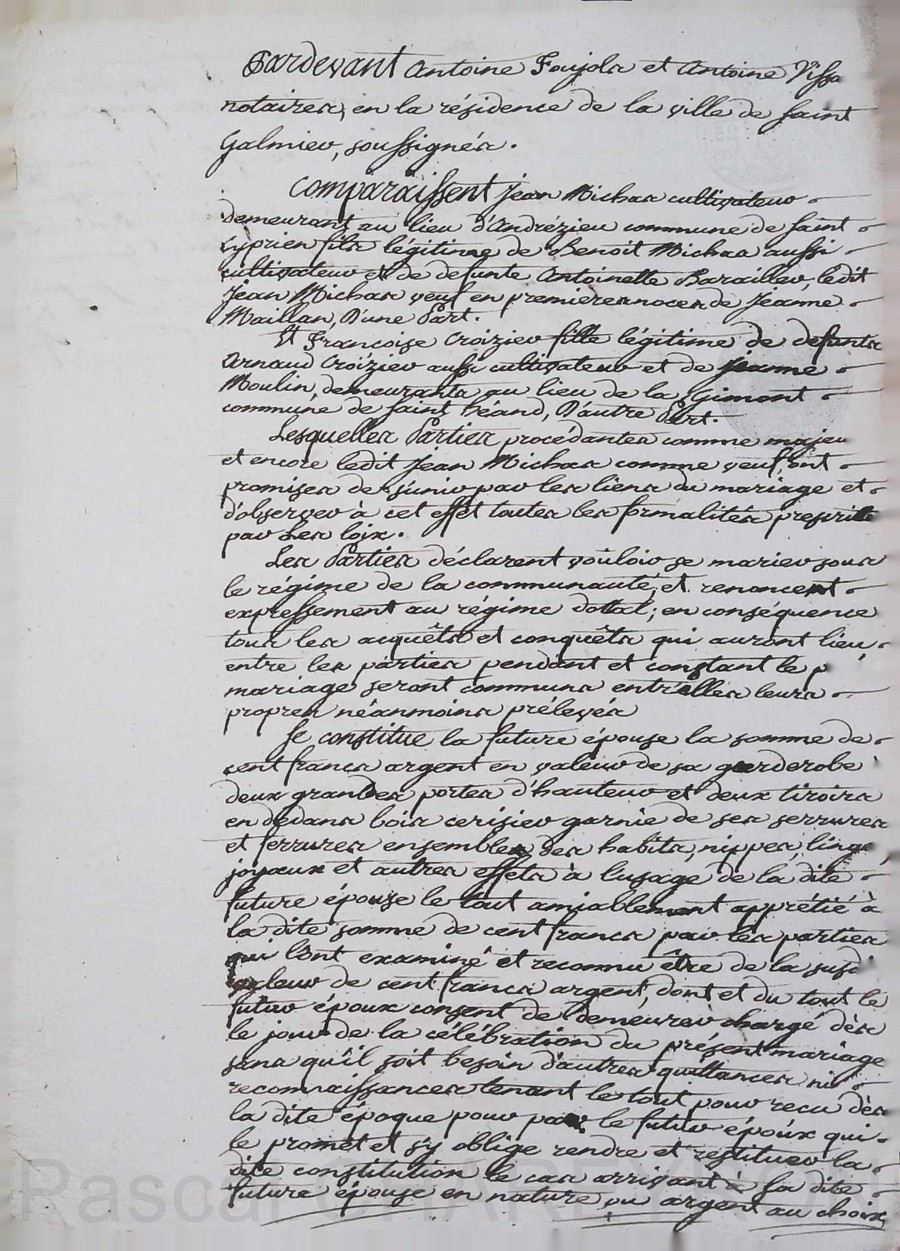 Pardevant Antoine Foujols et Antoine Vissa
notaires, en la résidence de la ville de saint
Galmier, soussignés.
Comparaissent Jean Michas cultivateur
demeurant au lieu d'Andrézieu commune de saint
Cyprien fils légitime de Benoit Michas aussi
cultivateur et de defunte Antoinette Barailler, ledit
Jean Michas veuf en premieres noces de Jeanne
Maillan, D'une Part.
Et Francoise Croizier fille légitime de defunts
Arnaud Croizier aussi cultivateur et de jeanne
Moulin, demeurants au lieu de la Gimont
commune de saint héand, D'autre Part.
Lesquelles Parties procédantes comme majeu
et encore ledit Jean Michas comme veuf, ont
promises de s'unir par les liens du mariage et
d'observer à cet effet toutes les formalités prescrite
par Les loix.
Les Parties déclarent vouloir se marier sous
le régime de la communauté, et renoncent
expressement au régime dottal; en conséquence
tous les acquêts et conquêts qui auront lieu
entre les parties pendant et constant le p
mariage seront communs entr'elles leurs
propres néanmoins prélevés
Se constitue la future épouse la somme de
cent francs argent en valeur de sa garderobe
deux grandes portes d'hauteur et deux tiroirs
en dedans bois cerisier garnie de ses serrures
et ferrures ensembles des habits, nippes, linge,
joyaux et autres effets à lusage de la dite
future épouse le tout amiablement apprétié à
la dite somme de cent francs par les parties
qui l'ont examiné et reconnu être de la susd
valeur de cent francs argent, dont et du tout le
futur époux consent de demeurer chargé dès
le jour de la célébration du présent mariage
sans qu'il soit besoin d'autres quittances ni
reconnaissances tenant le tout pour recu dès
la dite époque pour par le futur époux qui
le promet et s'y oblige rendre et restituer la
dite constitution le cas arrivant à sa dite
future épouse en nature ou argent au choix
Pascal CHAREYRON